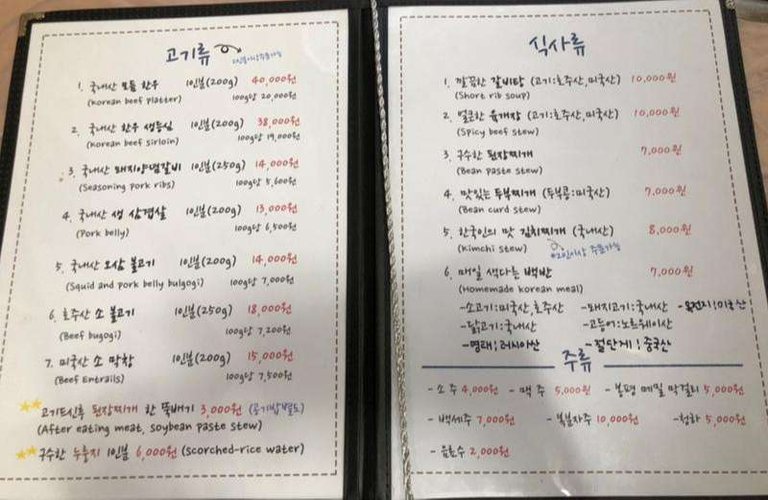 고기류
2인분이상 주문가능
1. 국내산 모듬 한우 1인분(200g) 40,000원
(Korean beef platter) 100g당 20,000원
2. 국내산 한우 생등심 1인분(200g) 38,000원
(Korean beef sirloin) 100g당 19,000원
3. 국내산 돼지양념갈비 1인분(250g) 14,000원
(Seasoning pork ribs) 100g당 5,600원
4. 국내산 생 삼겹살 1인분(200g) 13,000원
(Pork belly) 100g당 6,500원
5. 국내산 오삼 불고기 1인분(200g) 14,000원
(Squid and pork belly bulgogi) 100g당 7,000원
6. 호주산 소 불고기 1인분(250g) 18,000원
(Beef bugogi) 100g당 7,200원
7. 미국산 소 막창 1인분(200g) 15,000원
(Beef Entrails) 100g당 7,500원
고기드신후 된장찌개 한 뚝배기 3,000원 (공기밥별도)
(After eating meat, soybean paste stew)
구수한 누룽지 1인분 6,000원 (scorched-rice water)
식사류
1. 깔끔한 갈비탕 (고기:호주산,미국산) 10,000원
(Short rib soup)
2. 얼큰한 육개장 (고기:호주산,미국산) 10,000원
(Spicy beef stew)
3. 구수한 된장찌개 7,000원
(Bean paste stew)
4. 맛있는 두부찌개 (두부콩:미국산) 7,000원
(Bean curd stew)
5. 한국인의 맛 김치찌개 (국내산) 8,000원
(Kimchi stew) 2인이상 주문가능
6. 매일 색다른 백반 7,000원
(Homemade korean meal)
-소고기:미국산,호주산 -돼지고기:국내산
-닭고기:국내산 -고등어:노르웨이산
-명태:러시아산 -절단게:중국산
주류
-소주 4,000원 -맥주 5,000원 -봉평 메밀 막걸리 5,000원
-백세주 7,000원 -복분자주 10,000원 -청하 5,000원
-음료수 2,000원